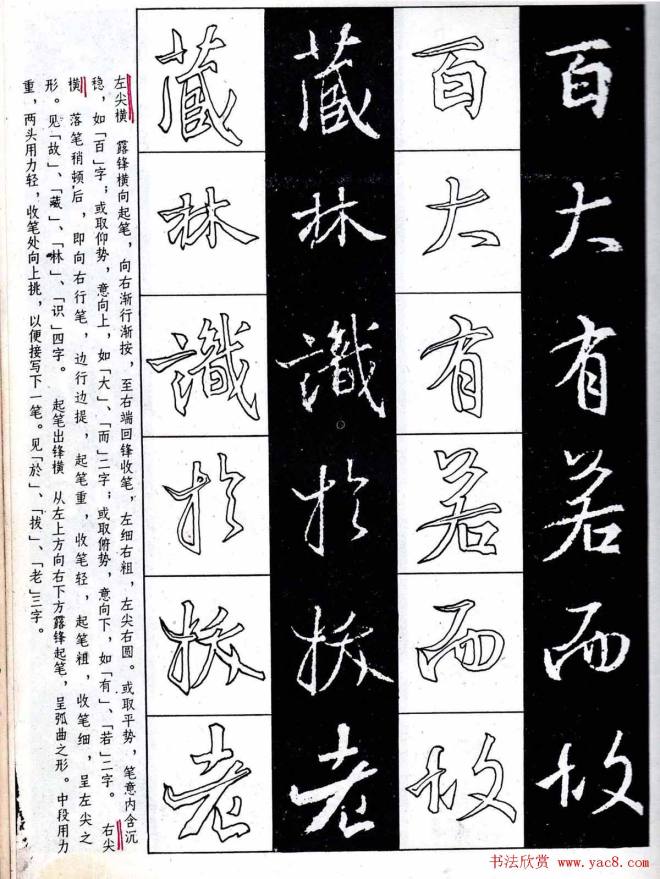 百大有若而故
百大有若而故
藏林識於拔老
藏林識於拔老
左尖横 露锋横向起笔，向右渐行渐按，至右端回锋收笔，左细右粗，左尖右圆。或取平势，笔意内含沉
稳，如「百」字；或取仰势，意向上，如「大」、「而」二字；或取俯势，意向下，如「有」、「若」二字。 右尖
横 落笔稍顿后，即向右行笔，边行边提，起笔重，收笔轻，起笔粗，收笔细，呈左尖之
形。见「故」、「藏」、「林」、「识」四字。 起笔出锋横 从左上方向右下方露锋起笔，呈弧曲之形。中段用力
重，两头用力轻，收笔处向上挑，以便接写下一笔。见「於」、「拔」、「老」三字。
书法欣赏 www.yac8.com